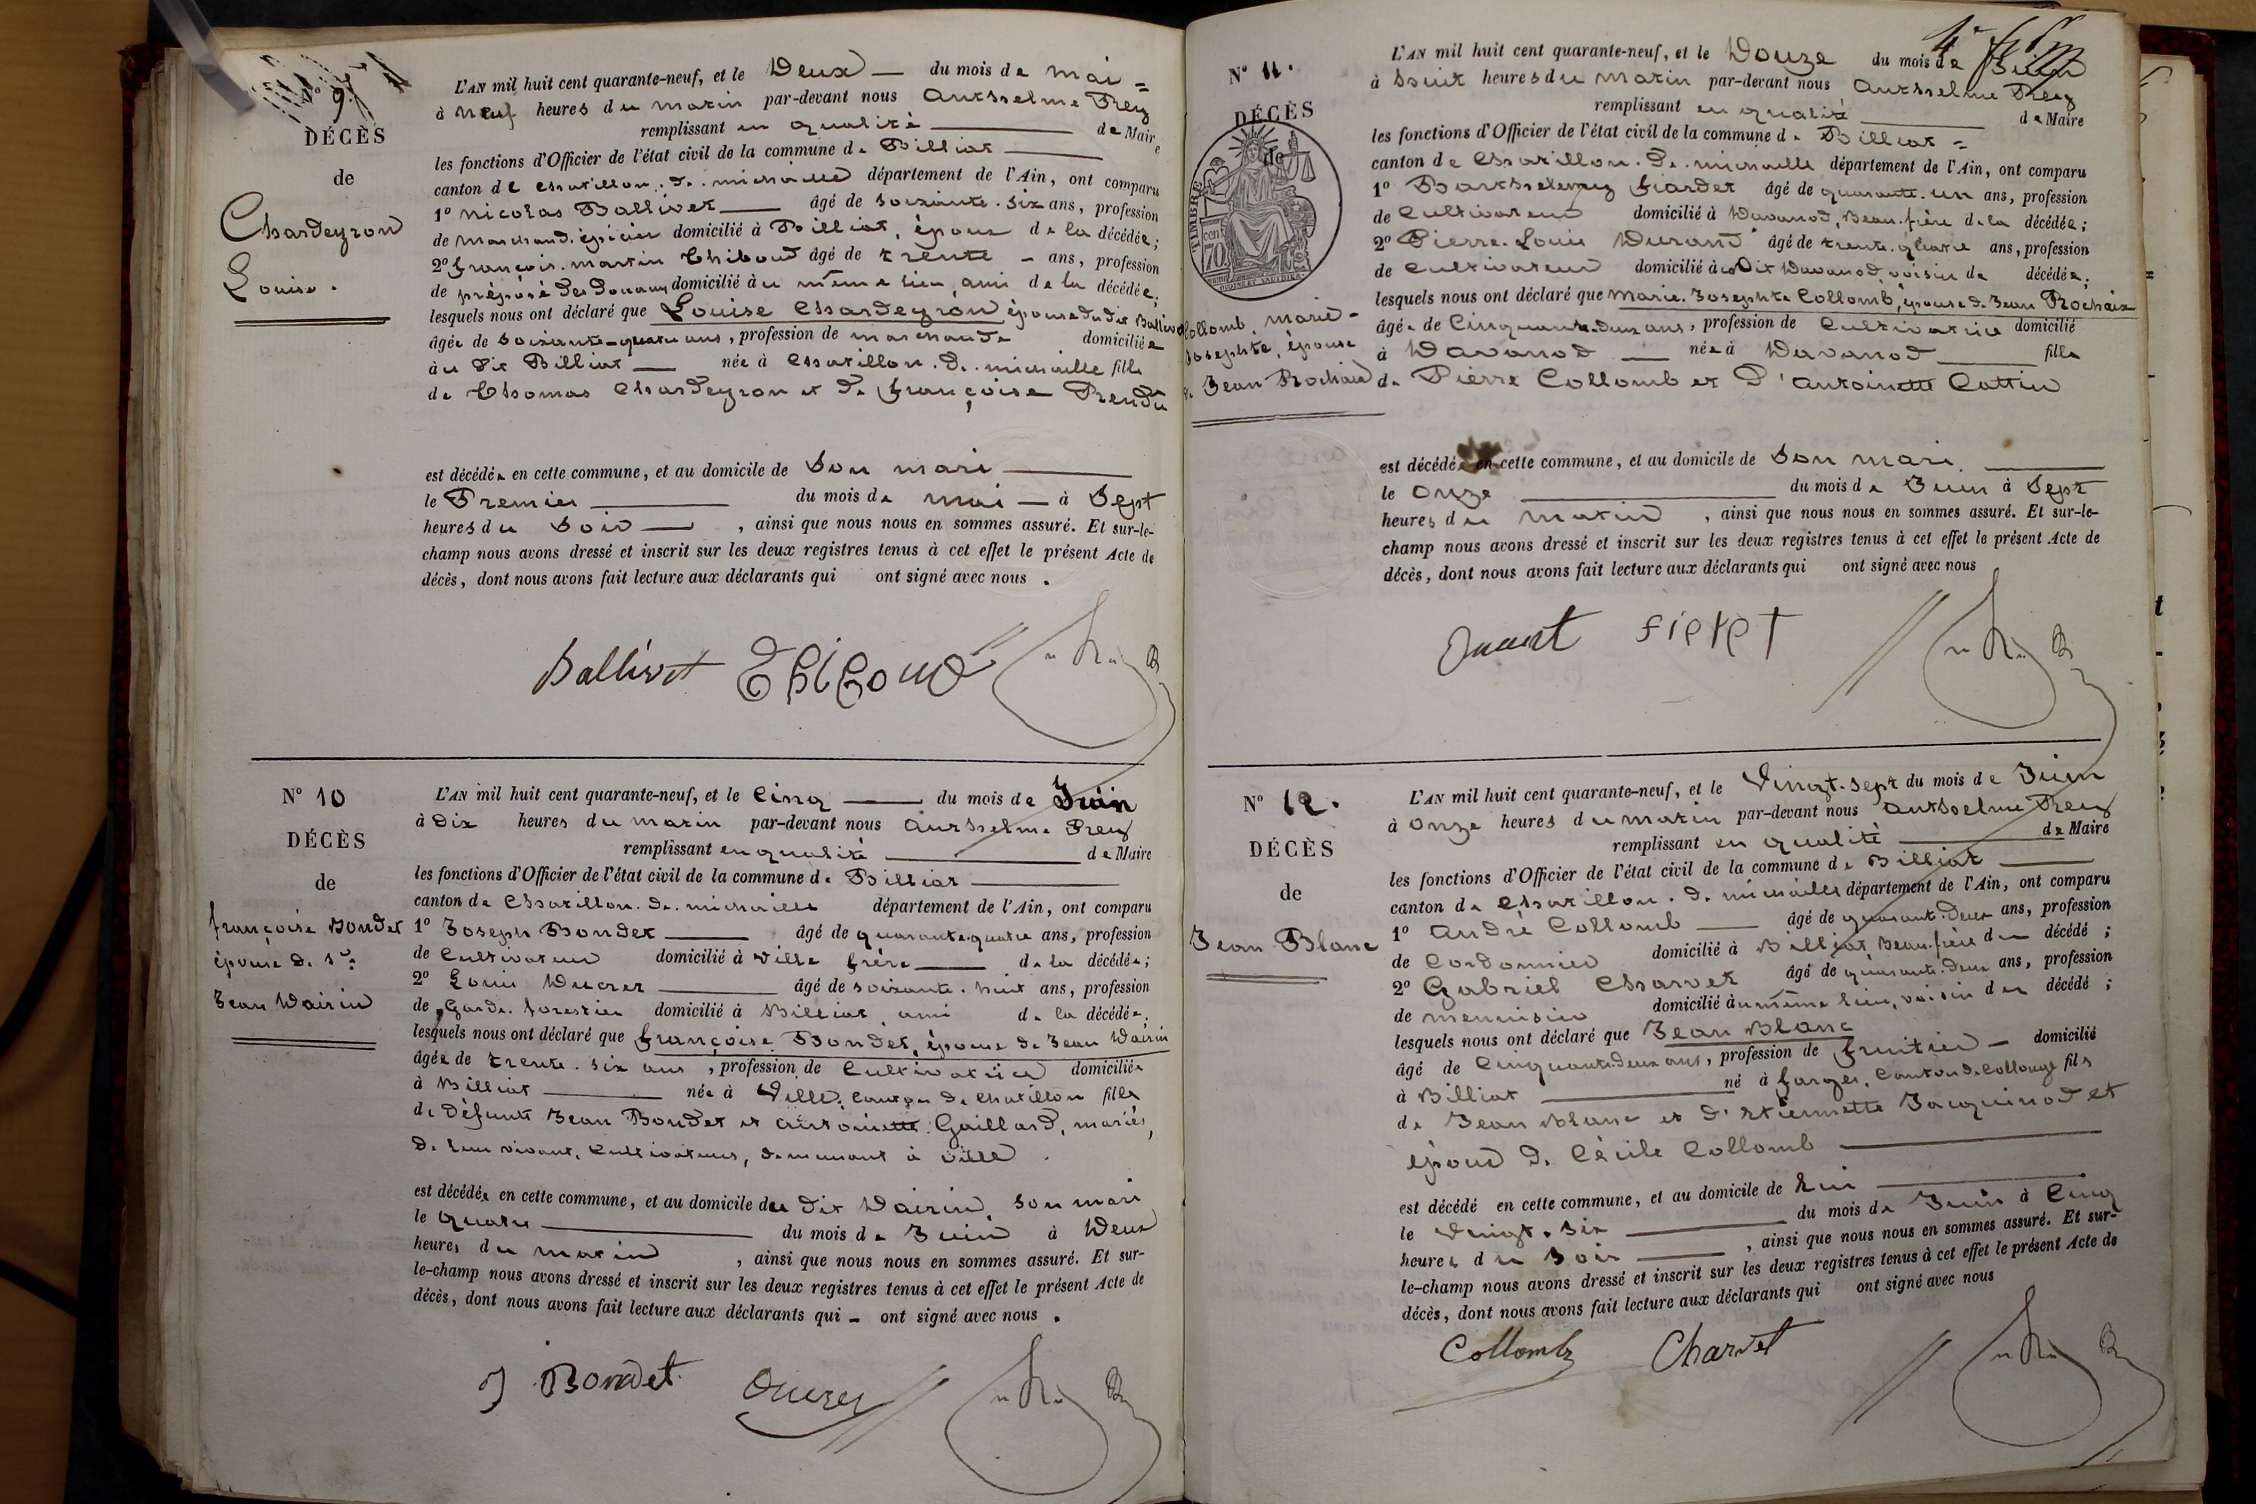 N° 9
DÉCÈS
de
Chardeyron
Louise.
L'AN mil huit cent quarante-neuf, et le Deux du mois de mai =
à neuf heures du matin par-devant nous Anthelme Prey
remplissant en qualité de Maire
les fonctions d'Officier de l'état civil de la commune de Billiat
canton de Chatillon. de. michaille département de l'Ain, ont comparu
1° Nicolas Ballivet âgé de soixante. six ans, profession
de marchand. épicier domicilié à Billiat, époux de la décédée;
2° françois. martin Thiboud âgé de trente - ans, profession
de préposé des Douanes domicilié au même lieu, ami de la décédée;
lesquels nous ont déclaré que Louise Chardeyron épouse du dit Ballivet
âgée de soixante-quatre ans, profession de marchande domiciliée
au dit Billiat née à Chatillon. de. michaille fille
de Thomas Chardeyron et de françoise Prendu
est décédée en cette commune, et au domicile de son mari
le Premier du mois de mai à Sept
heures du soir, ainsi que nous nous en sommes assuré. Et sur-le-
champ nous avons dressé et inscrit sur les deux registres tenus à cet effet le présent Acte de
décès, dont nous avons fait lecture aux déclarants qui ont signé avec nous.
Ballivet Thiboud
N° 10
DÉCÈS
de
françoise Bondet
épouse de Sr
Jean Dairin
L'AN mil huit cent quarante-neuf, et le Cinq du mois de Juin
à Dix heures du matin par-devant nous Anthelme Prey
remplissant en qualité de Maire
les fonctions d'Officier de l'état civil de la commune de Billiat
canton de Chatillon. de. michaille département de l'Ain, ont comparu
1° Joseph Bondet âgé de quarante-quatre ans, profession
de Cultivateur domicilié à ville frère de la décédée;
2° Louis Ducret âgé de soixante. huit ans, profession
de Garde. forestier domicilié à Billiat, ami de la décédée.
lesquels nous ont déclaré que françoise Bondet, épouse de Jean Dairin
âgée de trente. six ans, profession de Cultivatrice domiciliée
à Billiat née à Ville, Canton de Chatillon fille
de Défunts Jean Bondet et Antoinette Gaillard, mariés,
de leur vivant, Cultivateurs, demeurant à ville.
est décédée en cette commune, et au domicile du dit Dairin son mari
le quatre du mois de Juin à Deux
heures du matin, ainsi que nous nous en sommes assuré. Et sur-
le-champ nous avons dressé et inscrit sur les deux registres tenus à cet effet le présent Acte de
décès, dont nous avons fait lecture aux déclarants qui - ont signé avec nous.
J Bondet Ducret
N° 11.
DÉCÈS
de
TIMBRE
70
Collomb, marie-
Josephte, épouse
de Jean Rochaix
L'AN mil huit cent quarante-neuf, et le Douze du mois de Juin
à huit heures du matin par-devant nous Anthelme Prey
remplissant en qualité de Maire
les fonctions d'Officier de l'état civil de la commune de Billiat =
canton de Chatillon. de. michaille département de l'Ain, ont comparu
1° Barthelemy fiardet âgé de quarante. un ans, profession
de Cultivateur domicilié à Davanod, Beau-frère de la décédée;
2° Pierre. Louis Durand âgé de trente. quatre ans, profession
de Cultivateur domicilié au Dit Davanod, voisin de décédée;
lesquels nous ont déclaré que marie. Josephte Collomb, épouse de Jean Rochaix
âgée de Cinquante. deux ans, profession de Cultivatrice domicilié
à Davanod née à Davanod fille
de Pierre Collomb et D'antoinette Cattin
est décédée en cette commune, et au domicile de son mari
le onze du mois de Juin à Sept
heures du matin, ainsi que nous nous en sommes assuré. Et sur-le-
champ nous avons dressé et inscrit sur les deux registres tenus à cet effet le présent Acte de
décès, dont nous avons fait lecture aux déclarants qui ont signé avec nous
N° 12.
DÉCÈS
de
Jean Blanc
L'AN mil huit cent quarante-neuf, et le Vingt. sept du mois de Juin
à onze heures du matin par-devant nous Anthelme Prey
remplissant en qualité de Maire
les fonctions d'Officier de l'état civil de la commune de Billiat
canton de Chatillon. de. michaille département de l'Ain, ont comparu
1° André Collomb âgé de quarant. Deux ans, profession
de Cordonnier domicilié à Billiat, Beau. frère du décédé;
2° Gabriel Charvet âgé de quarante. deux ans, profession
de menuisier domicilié au même lieu, voisin du décédé;
lesquels nous ont déclaré que Jean Blanc
âgé de Cinquante. deux ans, profession de fruitier - domicilié
à Billiat né à farges, Canton de Collonge fils
de Jean Blanc et d'étiennette Jacquinod et
époux de Cécile Collomb
est décédé en cette commune, et au domicile de lui
le Vingt. six du mois de Juin à Cinq
heures du soir, ainsi que nous nous en sommes assuré. Et sur-
le-champ nous avons dressé et inscrit sur les deux registres tenus à cet effet le présent Acte de
décès, dont nous avons fait lecture aux déclarants qui ont signé avec nous
Collomb Charvet